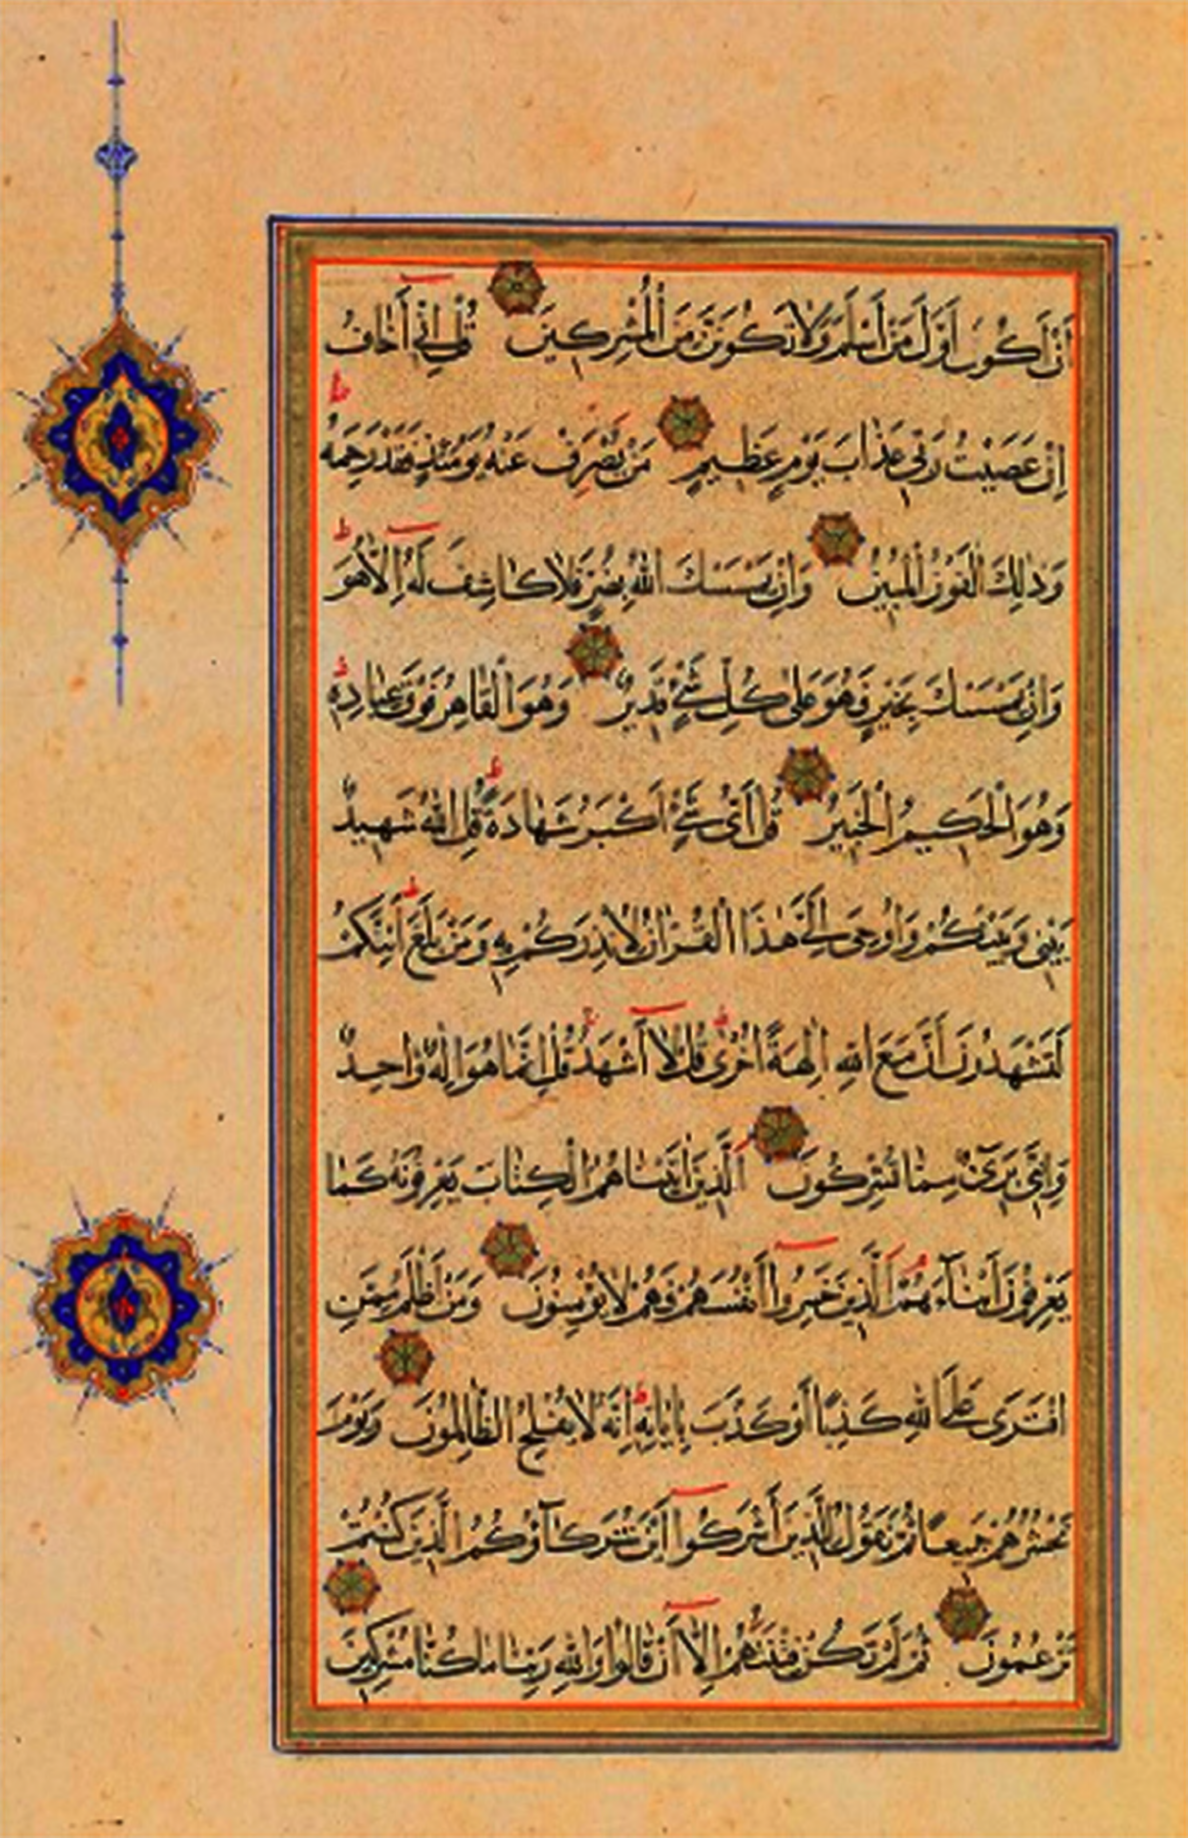 أَنْ أَكُونَ أَوَّلَ مَنْ أَسْلَمَ وَلَا تَكُونَنَّ مِنَ الْمُشْرِكِينَ قُلْ إِنِّي أَخَافُ
إِنْ عَصَيْتُ رَبِّي عَذَابَ يَوْمٍ عَظِيمٍ مَنْ يُصْرَفْ عَنْهُ يَوْمَئِذٍ فَقَدْ رَحِمَهُ
وَذَلِكَ الْفَوْزُ الْمُبِينُ وَإِنْ يَمْسَسْكَ اللَّهُ بِضُرٍّ فَلَا كَاشِفَ لَهُ إِلَّا هُوَ
وَإِنْ يَمْسَسْكَ بِخَيْرٍ فَهُوَ عَلَى كُلِّ شَيْءٍ قَدِيرٌ وَهُوَ الْقَاهِرُ فَوْقَ عِبَادِهِ
وَهُوَ الْحَكِيمُ الْخَبِيرُ قُلْ أَيُّ شَيْءٍ أَكْبَرُ شَهَادَةً قُلِ اللَّهُ شَهِيدٌ
بَيْنِي وَبَيْنَكُمْ وَأُوحِيَ إِلَيَّ هَذَا الْقُرْآنُ لِأُنْذِرَكُمْ بِهِ وَمَنْ بَلَغَ أَئِنَّكُمْ
لَتَشْهَدُونَ أَنَّ مَعَ اللَّهِ آلِهَةً أُخْرَى قُلْ لَا أَشْهَدُ قُلْ إِنَّمَا هُوَ إِلَهٌ وَاحِدٌ
وَإِنَّنِي بَرِيءٌ مِمَّا تُشْرِكُونَ الَّذِينَ آتَيْنَاهُمُ الْكِتَابَ يَعْرِفُونَهُ كَمَا
يَعْرِفُونَ أَبْنَاءَهُمُ الَّذِينَ خَسِرُوا أَنْفُسَهُمْ فَهُمْ لَا يُؤْمِنُونَ وَمَنْ أَظْلَمُ مِمَّنِ
افْتَرَى عَلَى اللَّهِ كَذِبًا أَوْ كَذَّبَ بِآيَاتِهِ إِنَّهُ لَا يُفْلِحُ الظَّالِمُونَ وَيَوْمَ
نَحْشُرُهُمْ جَمِيعًا ثُمَّ نَقُولُ لِلَّذِينَ أَشْرَكُوا أَيْنَ شُرَكَاؤُكُمُ الَّذِينَ كُنْتُمْ
تَزْعُمُونَ ثُمَّ لَمْ تَكُنْ فِتْنَتُهُمْ إِلَّا أَنْ قَالُوا وَاللَّهِ رَبِّنَا مَا كُنَّا مُشْرِكِينَ